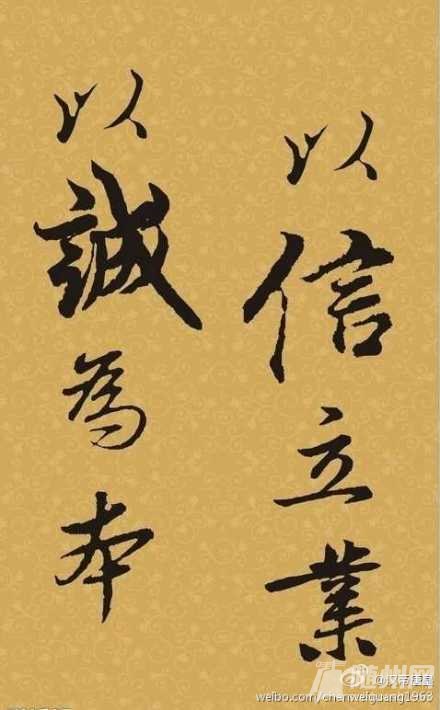 以信立業
以誠為本
随州网
weibo.com/chenweiguang1963